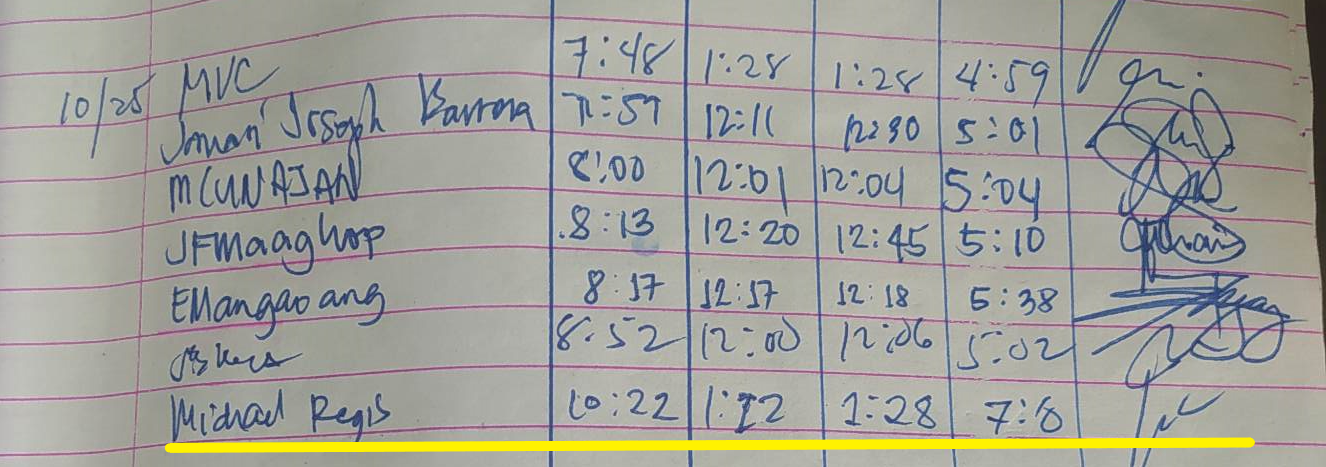 10/25 MVC 7:48 1:28 1:28 4:59
Joseph Barrona 7:59 12:11 12:30 5:01
MCUNAJAN 8:00 12:01 12:04 5:04
JFMaaghop 8:13 12:20 12:45 5:10
EMangaoang 8:17 12:17 12:18 5:38
8:52 12:00 12:06 5:02
Michael Regis 10:22 1:12 1:28 7:8